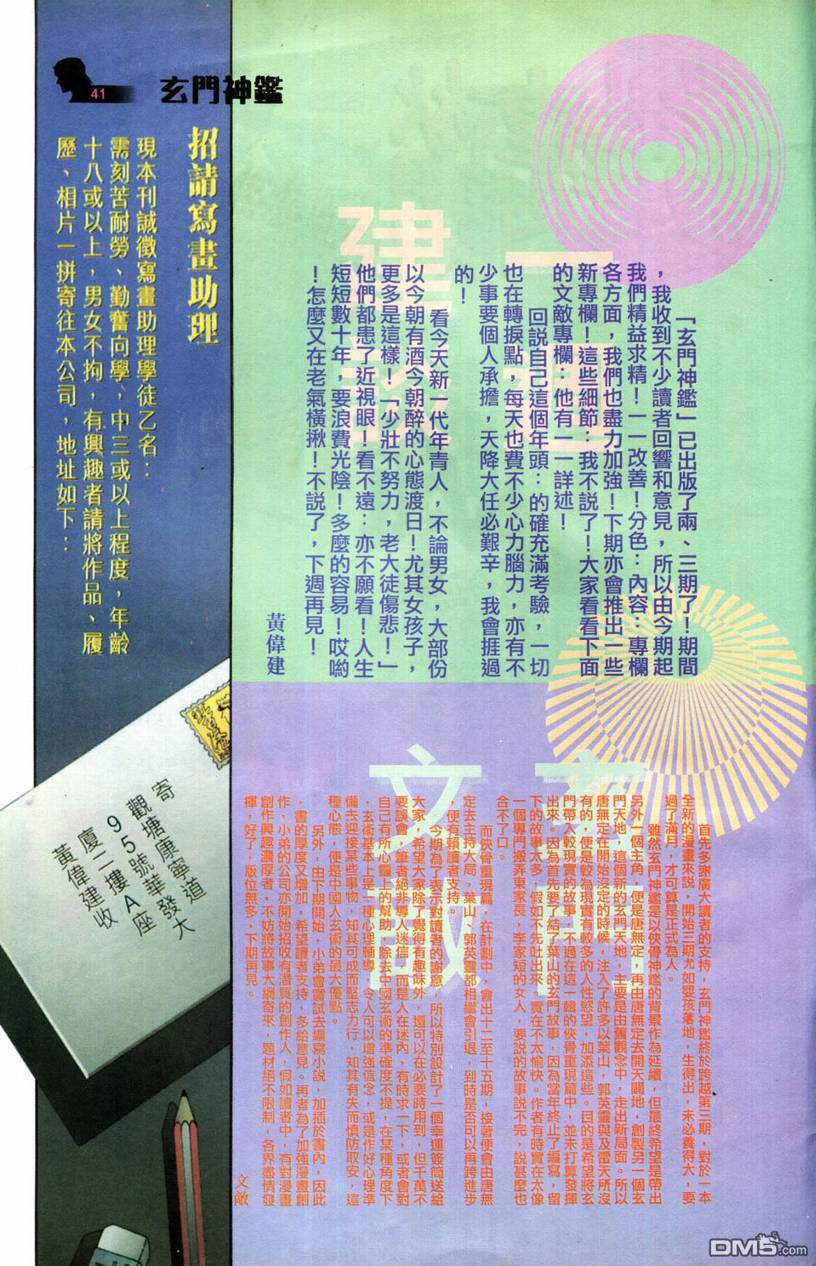 41
玄門神鑑
「玄門神鑑」已出版了兩、三期了！期間
，我收到不少讀者回響和意見，所以由今期起
我們精益求精！一一改善！分色：內容：專欄
各方面，我們也盡力加強！下期亦會推出一些
新專欄！這些細節：我不說了！大家看看下面
的文敵專欄：他有一一詳述！
回說自己這個年頭：的確充滿考驗，一切
也在轉捩點，每天也費不少心力腦力，亦有不
少事要個人承擔，天降大任必艱辛，我會捱過
的！
看今天新一代年青人，不論男女，大部份
以今朝有酒今朝醉的心態渡日！尤其女孩子，
更多是這樣！「少壯不努力，老大徒傷悲！」
他們都患了近視眼！看不遠：亦不願看！人生
短短數十年，要浪費光陰！多麼的容易！哎喲
！怎麼又在老氣橫揪！不說了，下週再見！
黃偉建
首先多謝廣大讀者的支持，玄門神鑑終於跨越第三期，對於一本
全新的漫畫來說，開始三期尤如嬰孩落地，生得出，未必養得大，要
過了滿月，才可算是正式為人。
雖然玄門神鑑是以俠骨神鑑的背景作為延續，但最終希望是帶出
另外一個主角，便是唐無定，再由唐無定去開天闢地，創製另一個玄
門天地，這個新的玄門天地，主要是由舊觀念中，走出新局面。所以
唐無定在開始設定的時候，注入了許多以葉山，郭英靈與及雷天所沒
有的，便是較為現實有較多的人性慾望，加添這些。目的是希望將玄
門帶入較現實的故事，不過在這一輯的俠骨重現篇中，並未打算發揮
出來。因為首先要了結了葉山的玄門故事，因為當年終止了編寫，留
下的故事太多，假如不先吐出來，實在不太愉快。作者有時實在太像
一個專門搬弄東家長，李家短的女人，要說的故事說不完，說甚麼也
合不了口。
而俠骨重現篇，在計劃中，會出十二至十五期，接著便會由唐無
定去主持大局，葉山、郭英靈都相繼會引退，到時是否可以再跨進步
，便有賴讀者支持。
今期為了表示對讀者的謝意，所以特別設計了一個幸運簽筒送給
大家，希望大家除了覺得有趣味外，還可以在必要時用到，但千萬不
要誤會，筆者絕非導人迷信，而是人在迷內，有時求一下，或者會對
自己有所心靈上的幫助，除去中國玄術的準確度不提，在某種角度下
，玄術基本上是一種心理輔導，令人可以增強信念，或是作好心理準
備去迎接某些事物，知其可成而堅志力行，知其有失而慎防取安，這
種心態，便是中國人玄術的最大優點。
另外，由下期開始，小弟會嘗試去編寫小說，加插於書內，因此
，書的厚度又增加，希望讀者支持，多給意見。再者為了加強漫畫創
作，小弟的公司亦開始招收有潛質的創作人，假如讀者中，有對漫畫
創作興趣濃厚者，不妨將故事大綱寄來，題材絕不限制，各界盡情發
揮，好了，版位無多，下期再見。
文敵
招請寫畫助理
現本刊誠徵寫畫助理學徒乙名：
需刻苦耐勞、勤奮向學，中三或以上程度，年齡
十八或以上，男女不拘，有興趣者請將作品、履
歷、相片一拼寄往本公司，地址如下：
寄
觀塘康寧道
95號華發大
廈二樓A座
黃偉建收
DM5.com